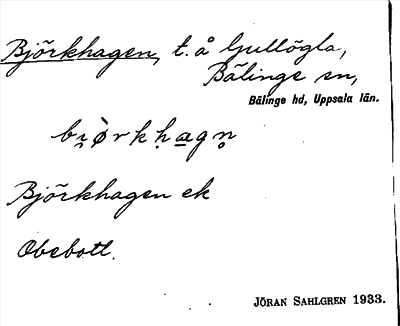 Björkhagen, t. å Gullögla,
Bälinge sn,
Bälinge hd, Uppsala län.
bi̯ò̱rkḥa̱gn̥
Björkhagen ek
Obebott.
JÖRAN SAHLGREN 1933.